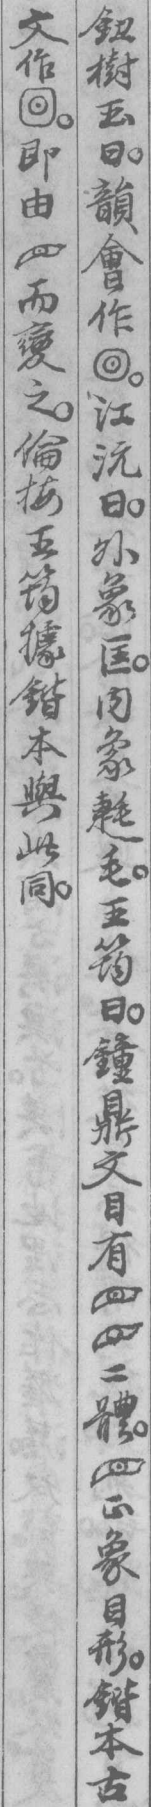 鈕樹玉曰。韻會作◎。江沅曰。外象匡。内象毣毛。王筠曰。鐘鼎文目有二體。正象目形。鍇本古
文作。即由而變之。倫按王筠據鍇本與此同。